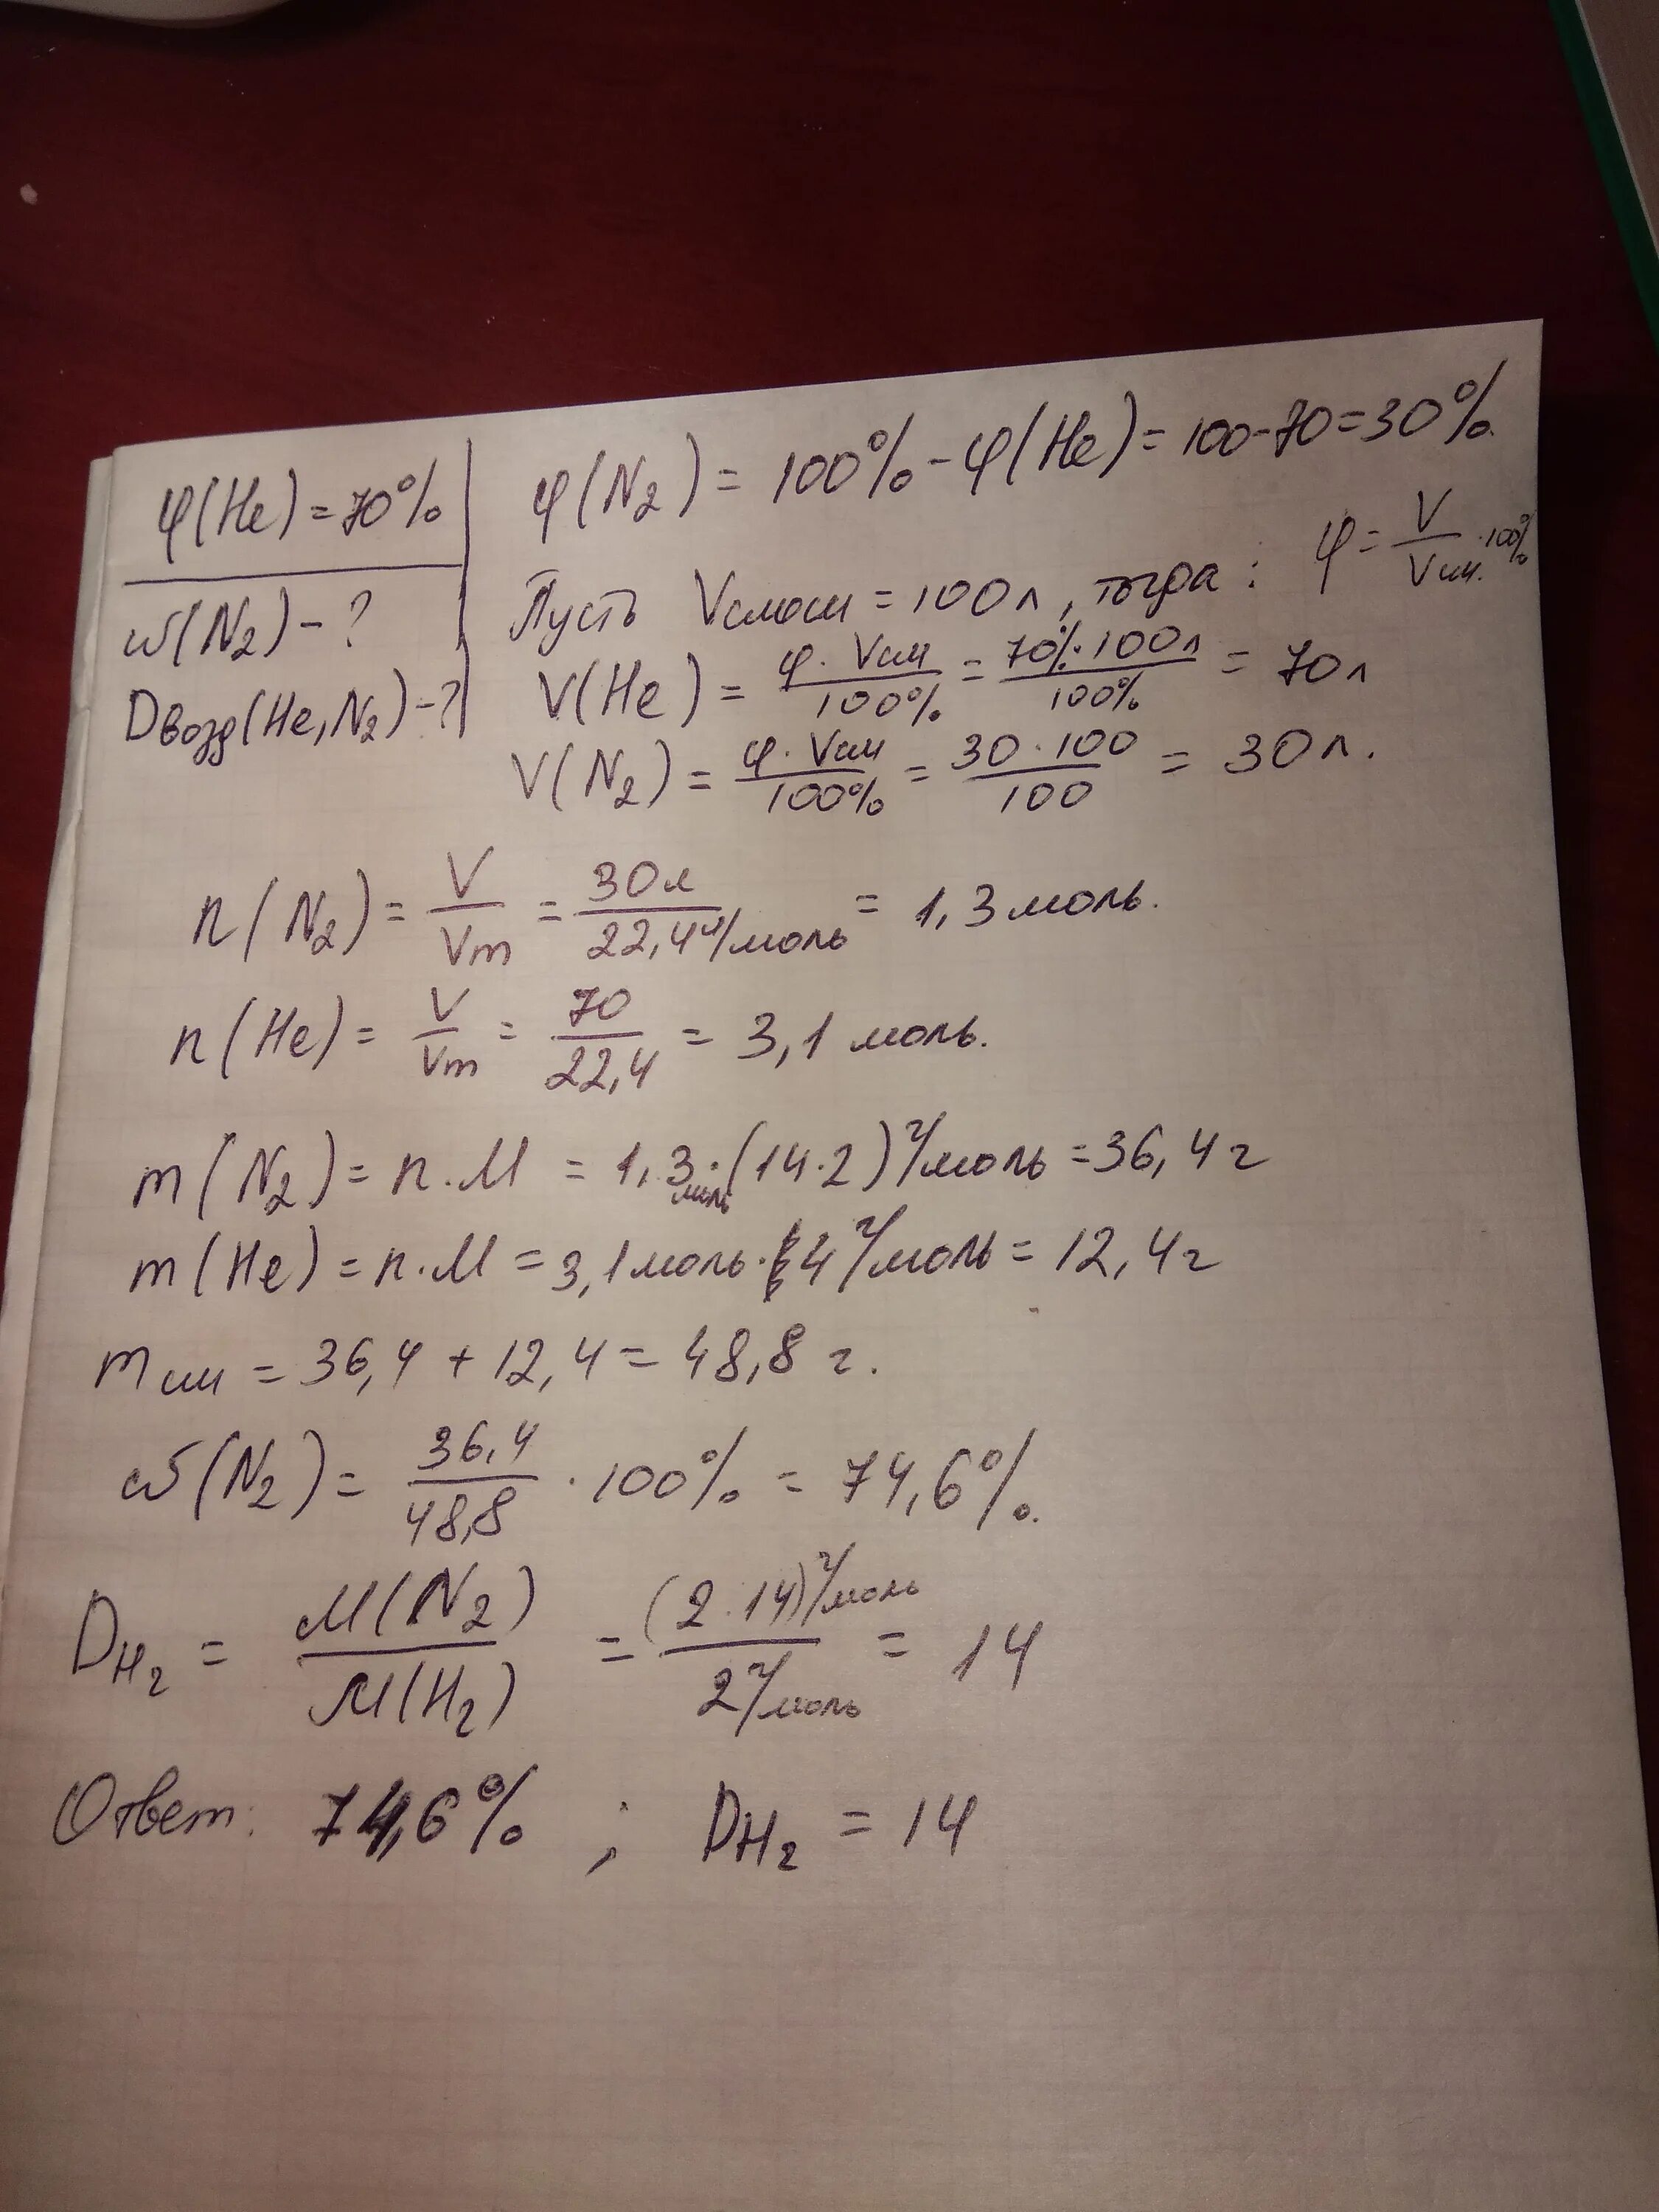 φ(He) = 70%
ω(N₂) - ?
Dвозд(He, N₂) - ?
φ(N₂) = 100% - φ(He) = 100 - 70 = 30%.
Пусть Vсмеси = 100л, тогда : φ = V / Vсм. · 100%
V(He) = φ · Vсм / 100% = 70% · 100л / 100% = 70л
V(N₂) = φ · Vсм / 100% = 30 · 100 / 100 = 30л.
n(N₂) = V / Vm = 30л / 22,4 л/моль = 1,3 моль.
n(He) = V / Vm = 70 / 22,4 = 3,1 моль.
m(N₂) = n · M = 1,3 моль · (14 · 2) г/моль = 36,4 г
m(He) = n · M = 3,1 моль · 4 г/моль = 12,4 г
mсм = 36,4 + 12,4 = 48,8 г.
ω(N₂) = 36,4 / 48,8 · 100% = 74,6%.
DH₂ = M(N₂) / M(H₂) = (2 · 14) г/моль / 2 г/моль = 14
Ответ: 74,6% ; DH₂ = 14